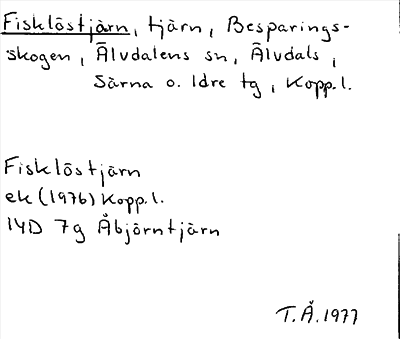 Fisklöstjärn, tjärn, Besparings-
skogen, Älvdalens sn, Älvdals,
Särna o. Idre tg, Kopp.l.
Fisklöstjärn
ek (1976) Kopp.l.
14D 7g Åbjörntjärn
T.Å.1977